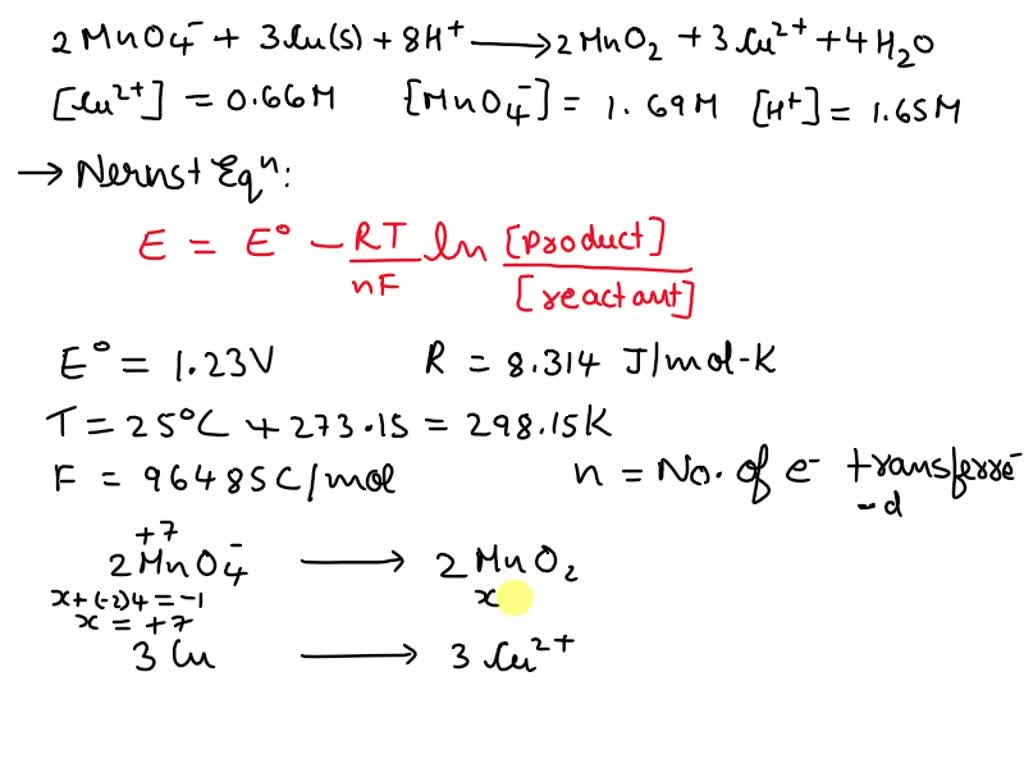 2MnO4⁻ + 3Cu(s) + 8H⁺ → 2MnO₂ + 3Cu²⁺ + 4H₂O
[Cu²⁺] = 0.66M [MnO4⁻] = 1.69M [H⁺] = 1.65M
→ Nernst Eqⁿ:
E = E° − RT/nF ln [product]/[reactant]
E° = 1.23V R = 8.314 J/mol-K
T = 25°C + 273.15 = 298.15K
F = 96485C/mol n = No. of e⁻ transferre
-d
+7
2MnO4⁻ → 2MnO₂
x+(-2)4 = -1 x
x = +7
3Cu → 3Cu²⁺